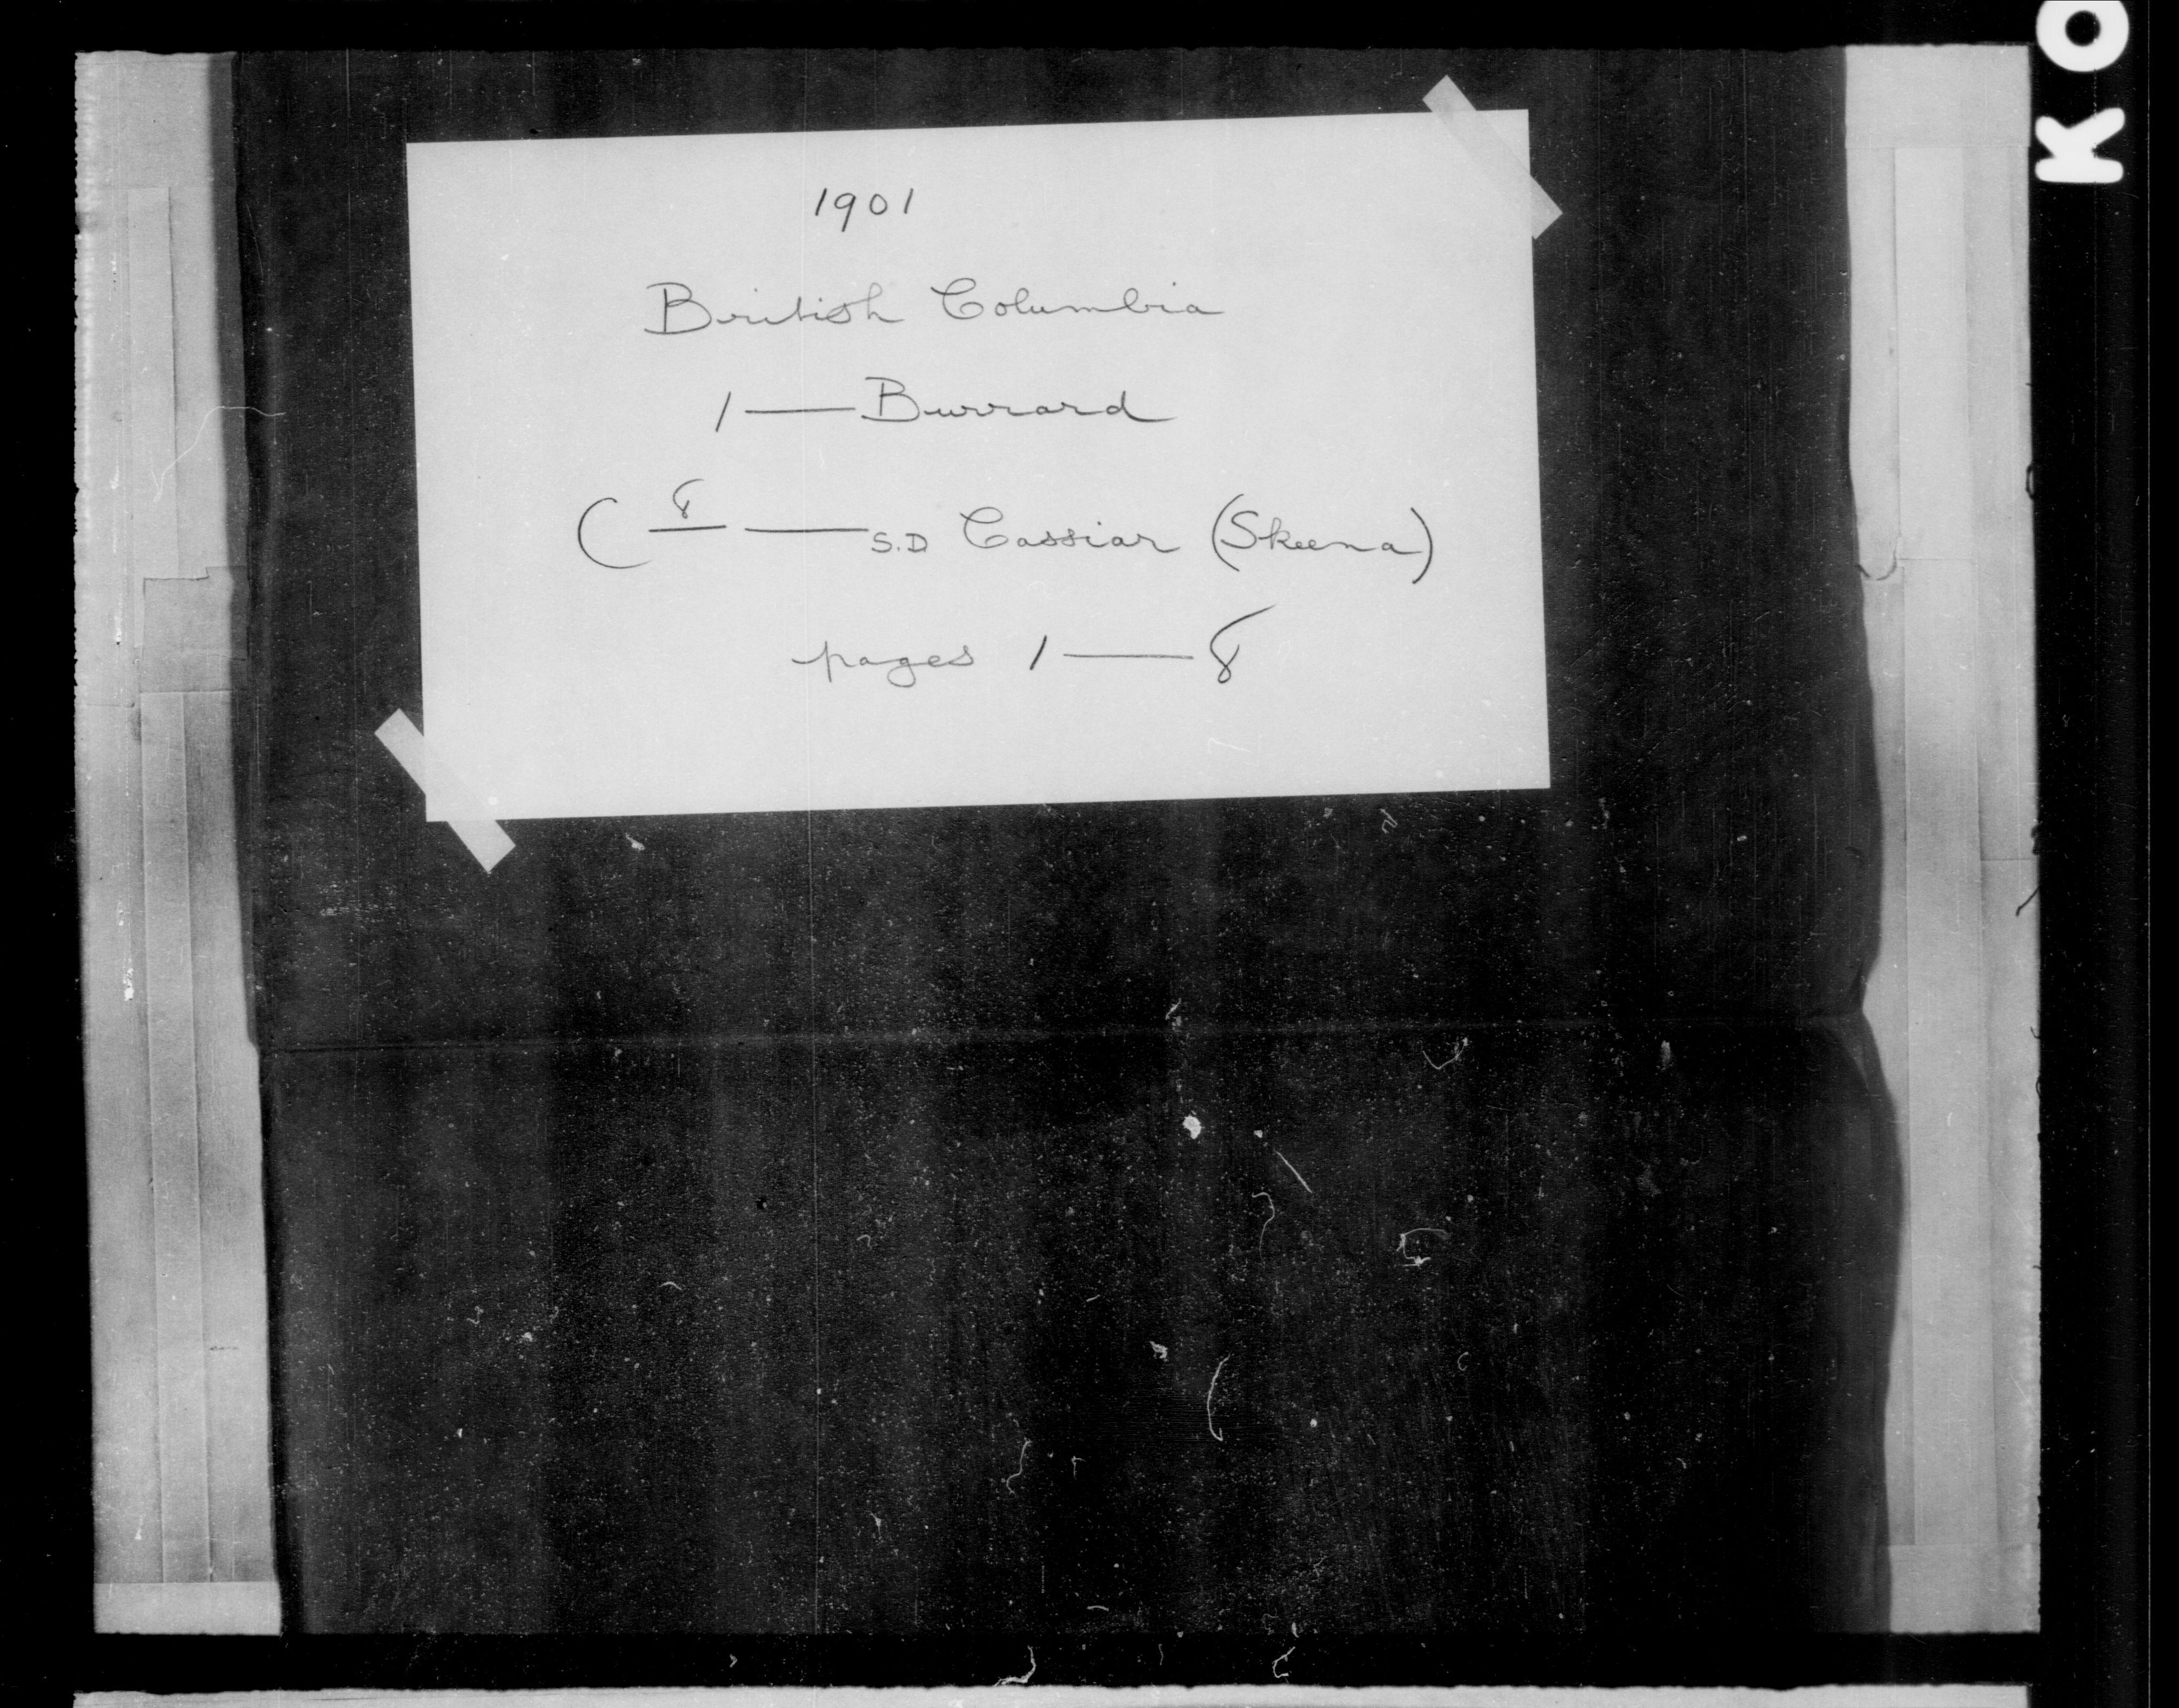 1901
British Columbia
1 — Burrard
( 8 — S.D Cassiar (Skeena)
pages 1 — 8
KO